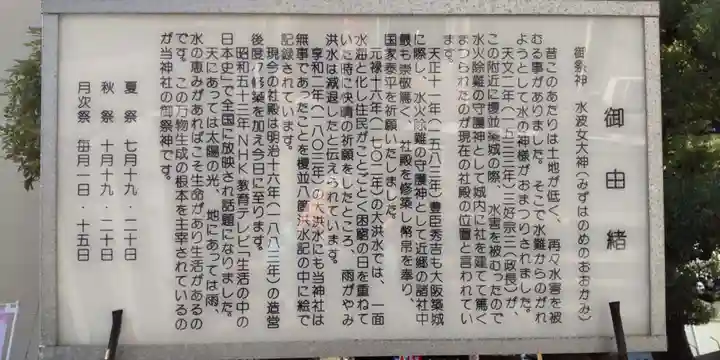 御由緒
御祭神　水波女大神(みずはのめのおおかみ)
昔このあたりは土地が低く、再々水害を被
むる事がありました。そこで水難からのがれ
ようとして水の神様がおまつりされました。
天文二年(一五三三年)三好宗三(政長)が、
この附近に榎並築城の際、水害を被むったので
水火除難の守護神として城内に社を建てて篤く
まつられたのが現在の社殿の位置と言われてい
ます。
天正十一年(一五八三年)豊臣秀吉も大阪築城
に際し、水火除難の守護神として近郷の諸社中
最も崇敬篤く、社殿を修築し幣帛を奉り、
国家泰平を祈願いたしました。
元禄十六年(一七〇三年)の大洪水では、一面
水海と化し住民がことごとく困窮の日を重ねて
いた時に快晴の祈願をしたところ、雨がやみ
洪水は減退したと伝えられています。
享和二年(一八〇二年)の大洪水にも当神社は
無事であったことを榎並八箇洪水記の中に絵で
記録されています。
現今の社殿は明治十六年(一八八三年)の造営
後度々修築を加え今日に至ります。
昭和五十三年NHK教育テレビ「生活の中の
日本史」で全国に放映され話題になりました。
天にあっては太陽の光、地にあっては雨、
水の恵みがあればこそ生命があり生活があるの
です。この万物生成の根本を主宰されているの
が当神社の御祭神です。
夏祭　七月十九・二十日
秋祭　十月十九・二十日
月次祭　毎月一日・十五日